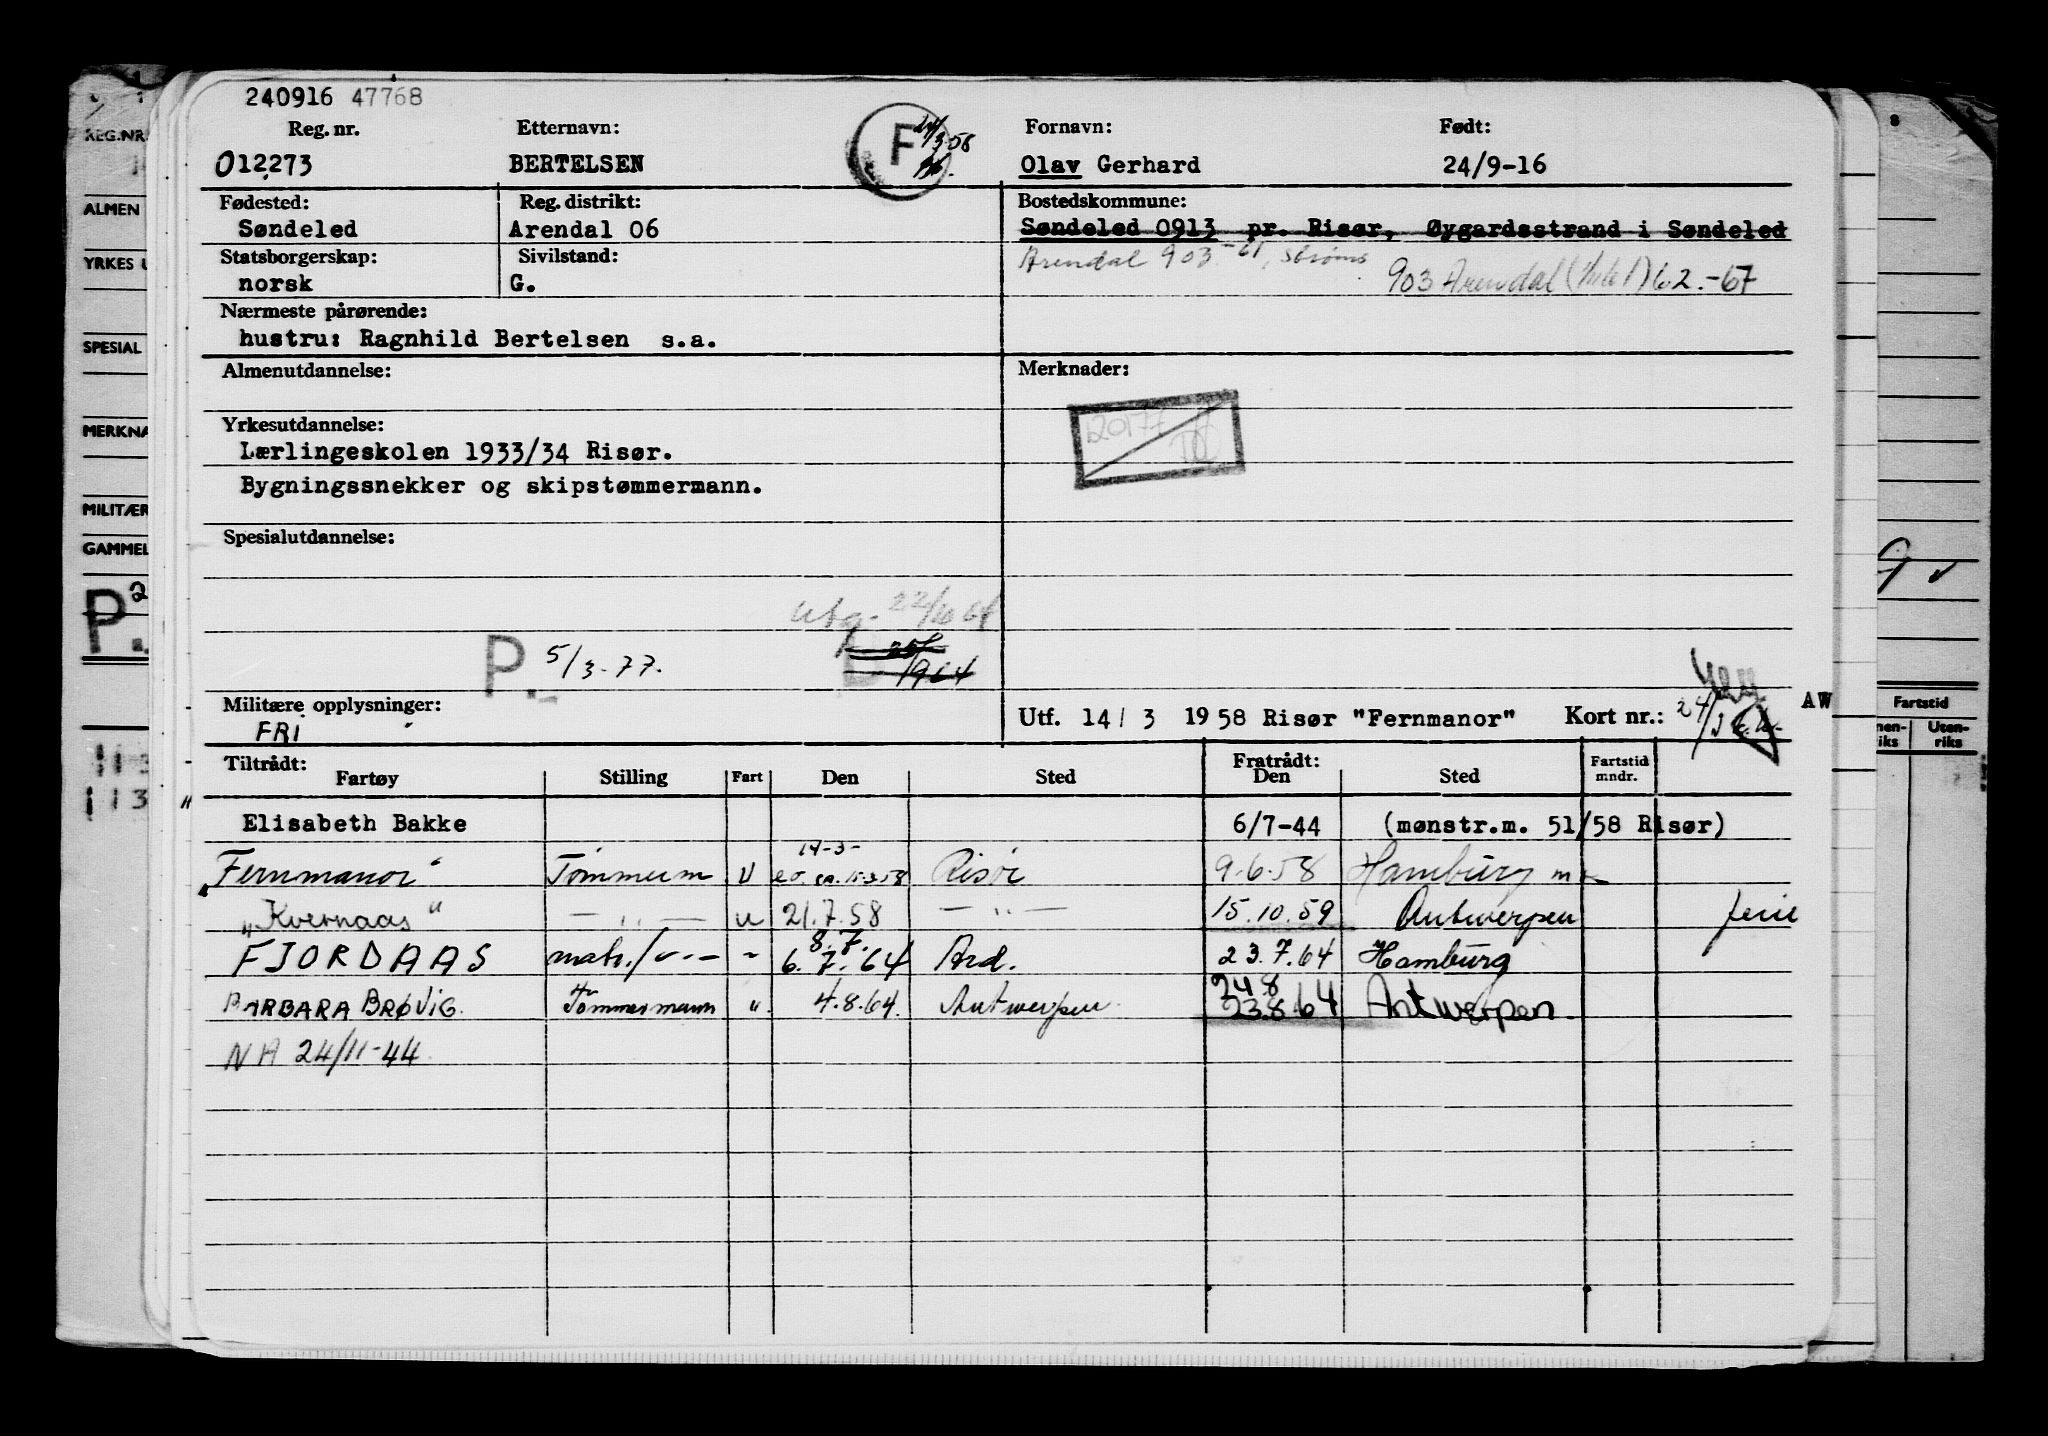 240916 47768
Reg. nr. Etternavn: Fornavn: Født:
012273 BERTELSEN F 24/3 58 Olav Gerhard 24/9-16
Fødested: Reg. distrikt: Bostedskommune:
Søndeled Arendal 06 Søndeled 0913 pr. Risør, Øygardsstrand i Søndeled
Statsborgerskap: Sivilstand: Arendal 903 -61,
norsk G. 903 Arendal 62.-67
Nærmeste pårørende:
hustru: Ragnhild Bertelsen s.a.
Almenutdannelse: Merknader:
Yrkesutdannelse:
Lærlingeskolen 1933/34 Risør.
Bygningssnekker og skipstømmermann.
Spesialutdannelse:
Utg. 22/10 64
P. 5/3-77.
1964
Militære opplysninger: Utf. 14/3 1958 Risør "Fernmanor" Kort nr.: AW
FRI
Tiltrådt: Fratrådt: Fartstid
Fartøy Stilling Fart Den Sted Den Sted mndr.
Elisabeth Bakke 6/7-44 (mønstr.m. 51/58 Risør)
14-3-
"Fernmanor" Tømmerm U 15.3.58 Risør 9.6.58 Hamburg
"Kvernaas" — " — u 21.7.58 — " — 15.10.59 Antwerpen ferie
8.7.
FJORDAAS matr. 6.7.64 Ard. 23.7.64 Hamburg
24 8
BARBARA BRØVIG Tømmermann " 4.8.64. Antwerpen 23.8.64 Antwerpen.
NA 24/11-44
REG.NR.
ALMEN
YRKES
SPESIAL
MERKNA
MILITÆR
GAMMEL
P. 2
Fartstid
nen-riks Uten-riks